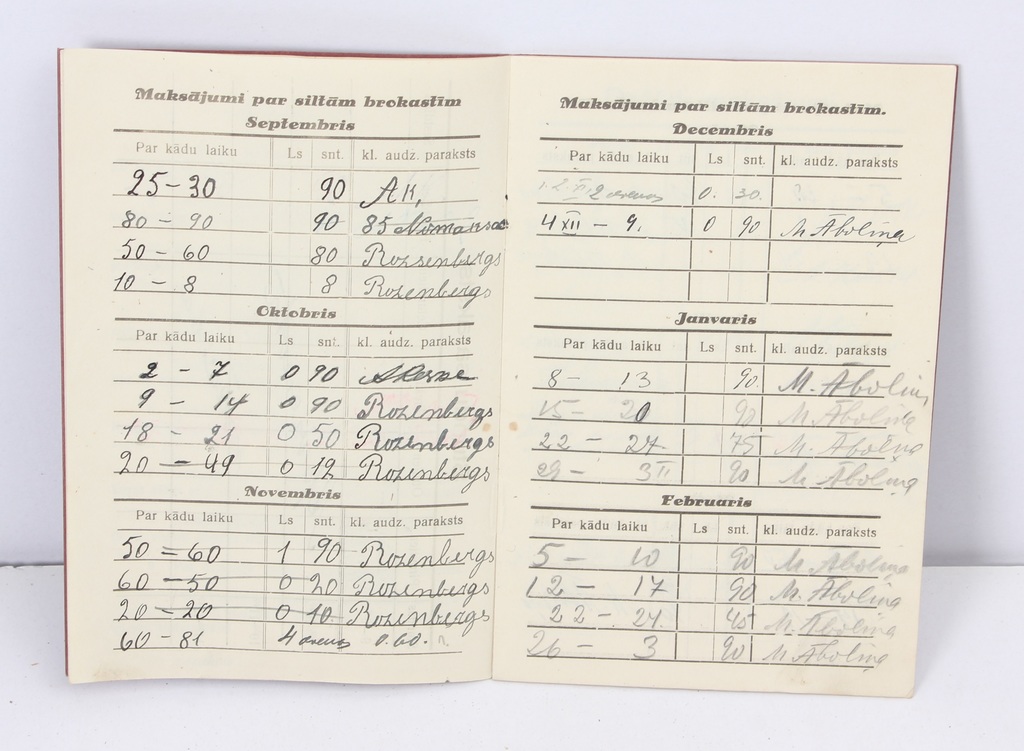 Maksājumi par siltām brokastīm
Septembris
Par kādu laiku Ls snt. kl. audz. paraksts
25-30 90 AK,
80 - 90 90 85
50 - 60 80 Rozsenbergs
10 - 8 8 Rozenbergs
Oktobris
Par kādu laiku Ls snt. kl. audz. paraksts
2 - 7 0 90
9 - 14 0 90 Rozenbergs
18 - 21 0 50 Rozenbergs
20 - 49 0 12 Rozenbergs
Novembris
Par kādu laiku Ls snt. kl. audz. paraksts
50 = 60 1 90 Rozenbergs
60 - 50 0 20 Rozenbergs
20 - 20 0 10. Rozenbergs
60 - 81 4 0.60.
Maksājumi par siltām brokastīm.
Decembris
Par kādu laiku Ls snt. kl. audz. paraksts
0. 30.
4 XII - 9. 0 90 M Āboliņa
Janvaris
Par kādu laiku Ls snt. kl. audz. paraksts
8 - 13 90. M. Āboliņ
15 - 20 90 M. Āboliņa
22 - 27 75 M. Āboliņa
29 - 3 II 90 M. Āboliņa
Februaris
Par kādu laiku Ls snt. kl. audz. paraksts
5 - 10 90 M. Āboliņa
12 - 17 90 M. Āboliņa
22 - 24 45 M. Āboliņa
26 - 3 90 M. Āboliņa